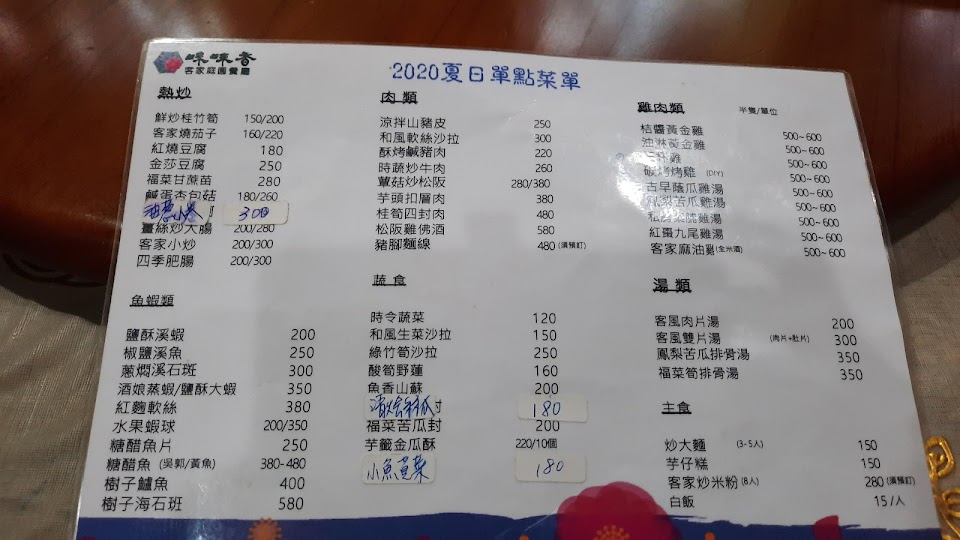 味味香
客家庭園餐廳
2020夏日單點菜單
熱炒
鮮炒桂竹筍 150/200
客家燒茄子 160/220
紅燒豆腐 180
金莎豆腐 250
福菜甘蔗苗 280
鹹蛋杏包菇 180/260
300
薑絲炒大腸 200/280
客家小炒 200/300
四季肥腸 200/300
魚蝦類
鹽酥溪蝦 200
椒鹽溪魚 250
蔥燜溪石斑 300
酒娘蒸蝦/鹽酥大蝦 350
紅麴軟絲 380
水果蝦球 200/350
糖醋魚片 250
糖醋魚 (吳郭/黃魚) 380-480
樹子鱸魚 400
樹子海石斑 580
肉類
涼拌山豬皮 250
和風軟絲沙拉 300
酥烤鹹豬肉 220
時蔬炒牛肉 260
蕈菇炒松阪 280/380
芋頭扣層肉 380
桂筍四封肉 480
松阪雞佛酒 580
豬腳麵線 480 (須預訂)
蔬食
時令蔬菜 120
和風生菜沙拉 150
綠竹筍沙拉 250
酸筍野蓮 160
魚香山蘇 200
封 180
福菜苦瓜封 200
芋籤金瓜酥 220/10個
小魚莧菜 180
雞肉類 半隻/單位
桔醬黃金雞 500~600
油淋黃金雞 500~600
雞 500~600
碳烤烤雞 (DIY) 500~600
古早蔭瓜雞湯 500~600
鳳梨苦瓜雞湯 500~600
雞湯 500~600
紅棗九尾雞湯 500~600
客家麻油雞 (全米酒) 500~600
湯類
客風肉片湯 200
客風雙片湯 (肉片+肚片) 300
鳳梨苦瓜排骨湯 350
福菜筍排骨湯 350
主食
炒大麵 (3-5人) 150
芋仔糕 150
客家炒米粉 (8人) 280 (須預訂)
白飯 15/人